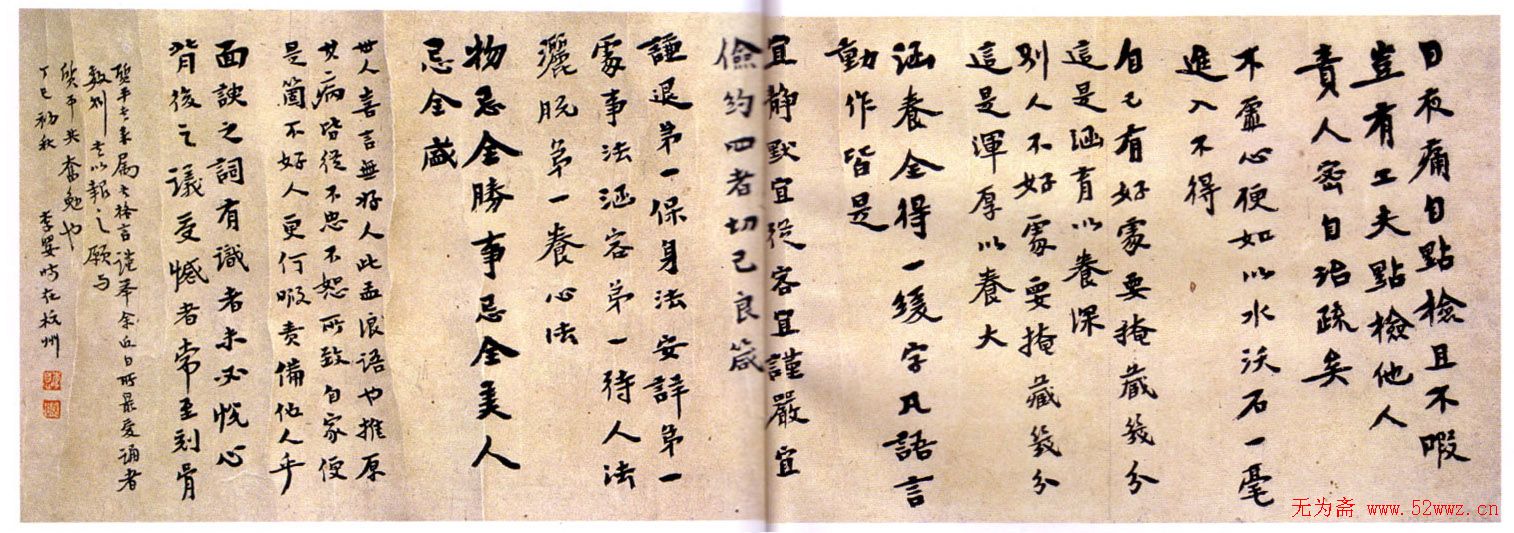 日夜痛自點檢且不暇
豈有工夫點檢他人
責人密自治疏矣
不虛心便如以水沃石一毫
進入不得
自己有好處要掩藏幾分
這是涵育以養深
別人不好處要掩藏幾分
這是渾厚以養大
涵養全得一緩字凡語言
動作皆是
宜靜默宜從容宜謹嚴宜
儉約四者切己良箴
謙退第一保身法安詳第一
處事法涵容第一待人法
灑脫第一養心法
物忌全勝事忌全美人
忌全盛
世人喜言無好人此孟浪語也推原
其病皆從不忠不恕所致自家便
是箇不好人更何暇責備他人乎
面諛之詞有識者未必悅心
背後之議受憾者常至刻骨
質平
屬書格言謹奉余近日所最愛誦者
數則書以報之願與
質平共奮勉也
丁巳初秋 李嬰時在杭州
无为斋 www.52wwz.cn